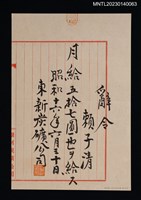 MNTL20230140063
辭令
賴子清
月給五拾七圓也ヲ給ス
昭和十六年六月三十日
東新炭礦公司